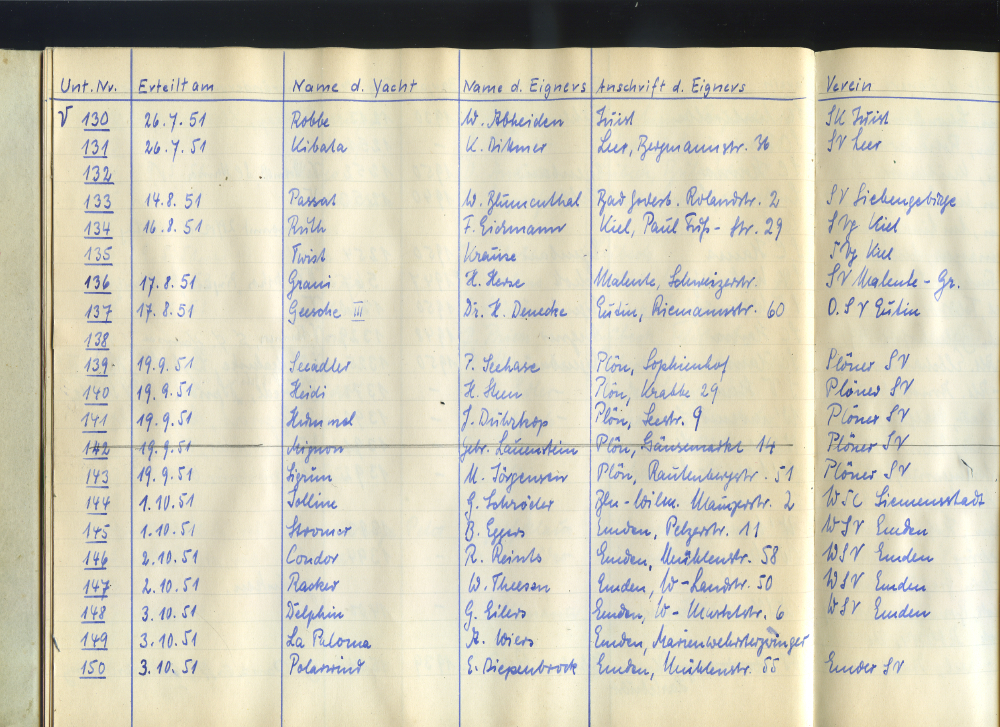 Unt. Nr. Erteilt am Name d. Yacht Name d. Eigners Anschrift d. Eigners Verein
V 130 26.7.51 Robbe W. Abheiden Juist SK Juist
131 26.7.51 Kibata K. Dikmer Leer, Bergmannstr. 36 SV Leer
132
133 14.8.51 Passat W. Blumenthal Bad Godesb. Rolandstr. 2 SV Siebengebirge
134 16.8.51 Ruth F. Eickmann Kiel, Paul Fuß-Str. 29 SVg Kiel
135 Twist Krause SVg Kiel
136 17.8.51 H. Hesse Malente, Schweizerstr. SV Malente-Gr.
137 17.8.51 Geesche III Dr. H. Denecke Eutin, Riemannstr. 60 O.SV Eutin
138
139 19.9.51 Seeadler P. Seehase Plön, Sophienhof Plöner SV
140 19.9.51 Heidi H. Plön, Krabbe 29 Plöner SV
141 19.9.51 Hummel J. Plön, Seestr. 9 Plöner SV
142 19.9.51 Mignon Gebr. Lauenstein Plön, Gänsemarkt 14 Plöner SV
143 19.9.51 Sigrun M. Jörgensen Plön, Rautenbergstr. 51 Plöner SV
144 1.10.51 Solline G. Schröder Bln-Wilm. 2 WSC Siemensstadt
145 1.10.51 Stromer B. Eggers Emden, Pelzerstr. 11 WSV Emden
146 2.10.51 Condor R. Reints Emden, Mühlenstr. 58 WSV Emden
147 2.10.51 Racker W. Theesen Emden, W-Landstr. 50 WSV Emden
148 3.10.51 Delphin G. Eilers Emden, W-Marktstr. 6 WSV Emden
149 3.10.51 La Paloma A. Wiers Emden, Marienwehrsterzwinger
150 3.10.51 Polarwind E. Diepenbrock Emden, Mühlenstr. 55 Emder SV